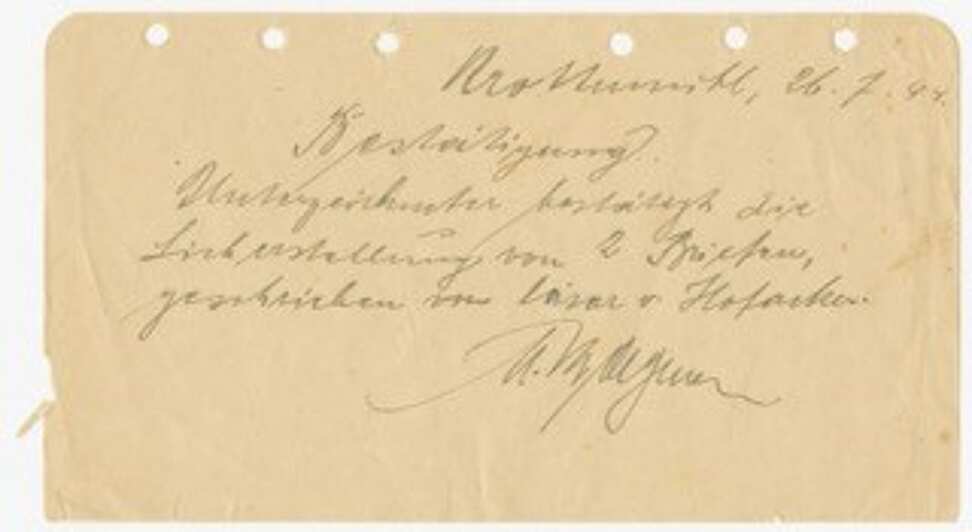 Krottenmühl, 26. 7. 44.
Bestätigung.
Unterzeichneter bestätigt die
Sicherstellung von 2 Briefen,
geschrieben von Cäsar v. Hofacker.